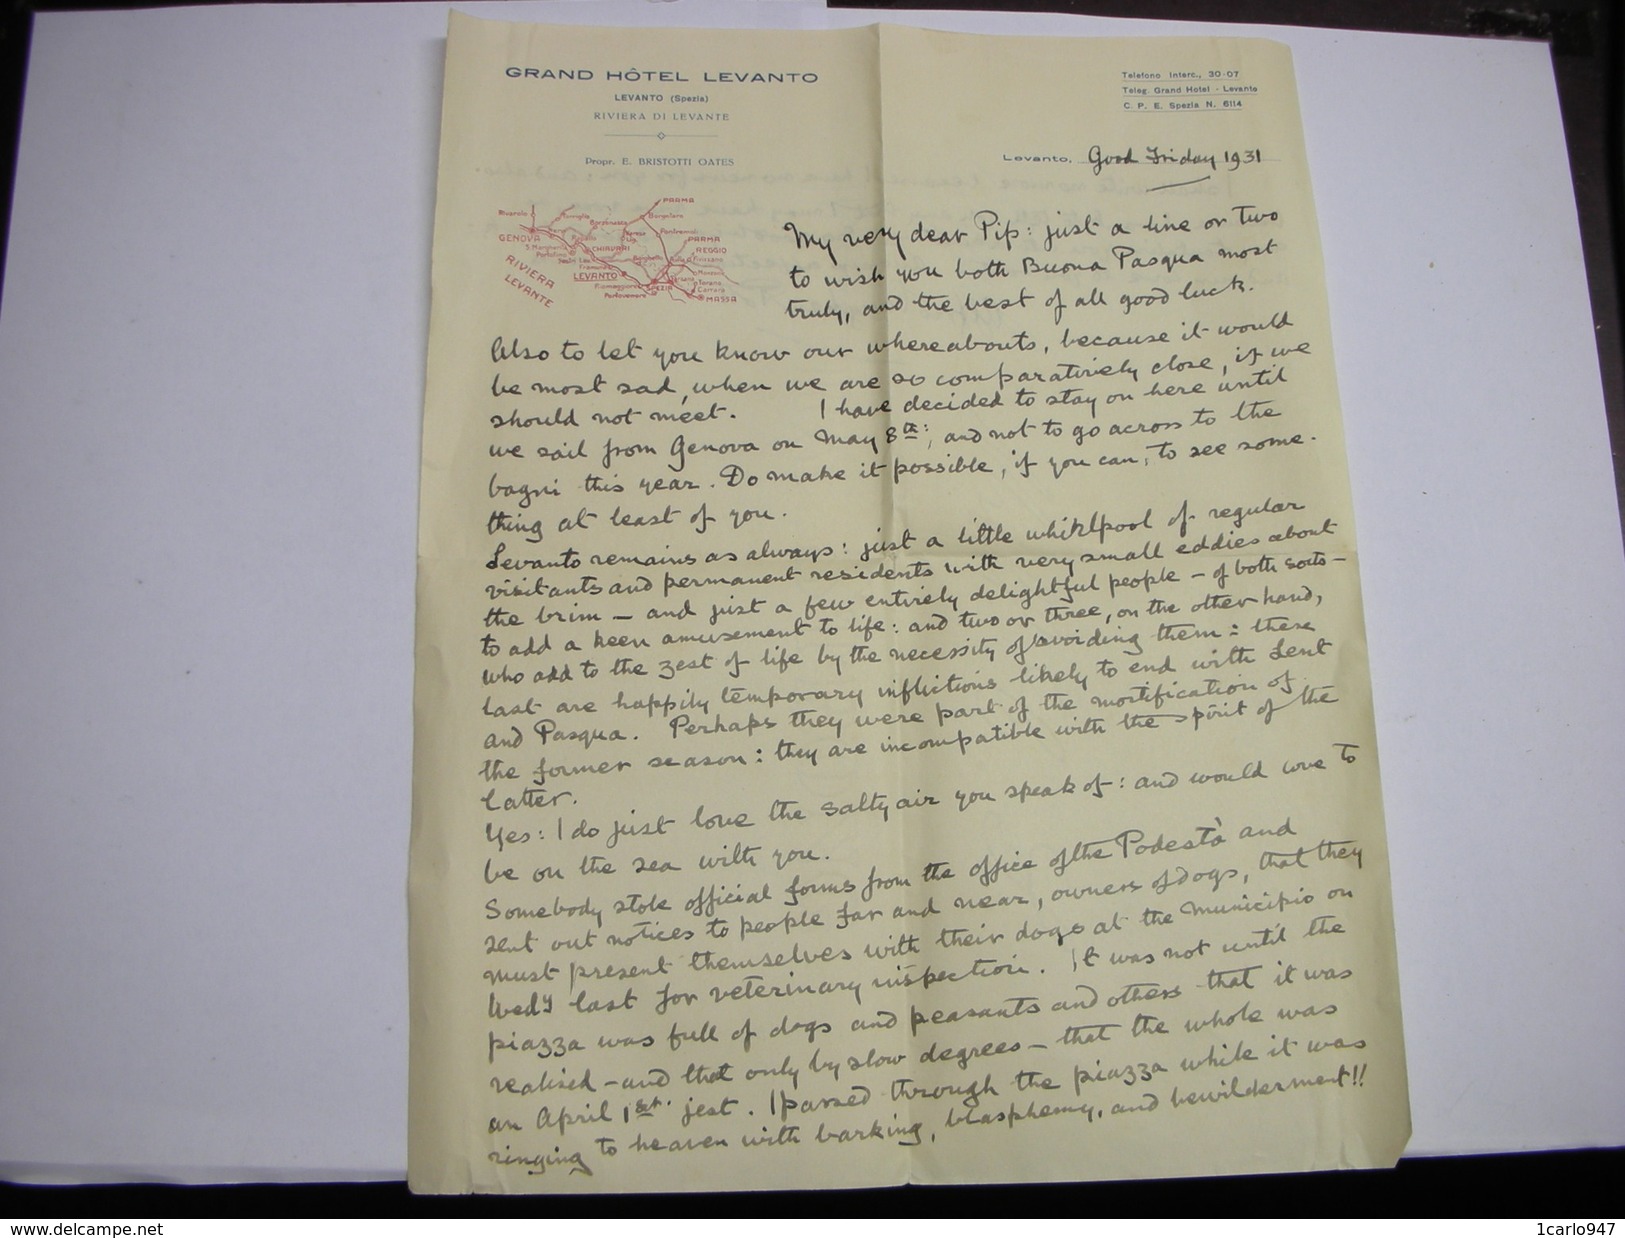 GRAND HÔTEL LEVANTO
LEVANTO (Spezia)
RIVIERA DI LEVANTE
Propr. E. BRISTOTTI OATES
Telefono Interc., 30-07
Teleg. Grand Hotel - Levanto
C. P. E. Spezia N. 6114
Levanto, Good Friday 1931
PARMA
Borgotaro
Pontremoli
PARMA
REGGIO
GENOVA
CHIAVARI
LEVANTO
SPEZIA
Carrara
MASSA
Portovenere
RIVIERA
LEVANTE
My very dear Pip: just a line or two
to wish you both Buona Pasqua most
truly, and the best of all good luck.
Also to let you know our whereabouts, because it would
be most sad, when we are so comparatively close, if we
should not meet. I have decided to stay on here until
we sail from Genova on May 8th:, and not to go across to the
bagni this year. Do make it possible, if you can, to see some-
thing at least of you.
Levanto remains as always: just a little whirlpool of regular
visitants and permanent residents with very small eddies about
the brim – and just a few entirely delightful people – of both sorts –
to add a keen amusement to life: and two or three, on the other hand,
who add to the zest of life by the necessity of avoiding them: these
last are happily temporary inflictions likely to end with Lent
and Pasqua. Perhaps they were part of the mortification of
the former season: they are incompatible with the spirit of the
latter.
Yes: I do just love the salty air you speak of: and would love to
be on the sea with you.
Somebody stole official forms from the office of the Podestà and
sent out notices to people far and near, owners of dogs, that they
must present themselves with their dogs at the Municipio on
Wedy last for veterinary inspection. It was not until the
piazza was full of dogs and peasants and others that it was
realised – and that only by slow degrees – that the whole was
an April 1st. jest. I passed through the piazza while it was
ringing to heaven with barking, blasphemy, and bewilderment!!
www.delcampe.net
1carlo947